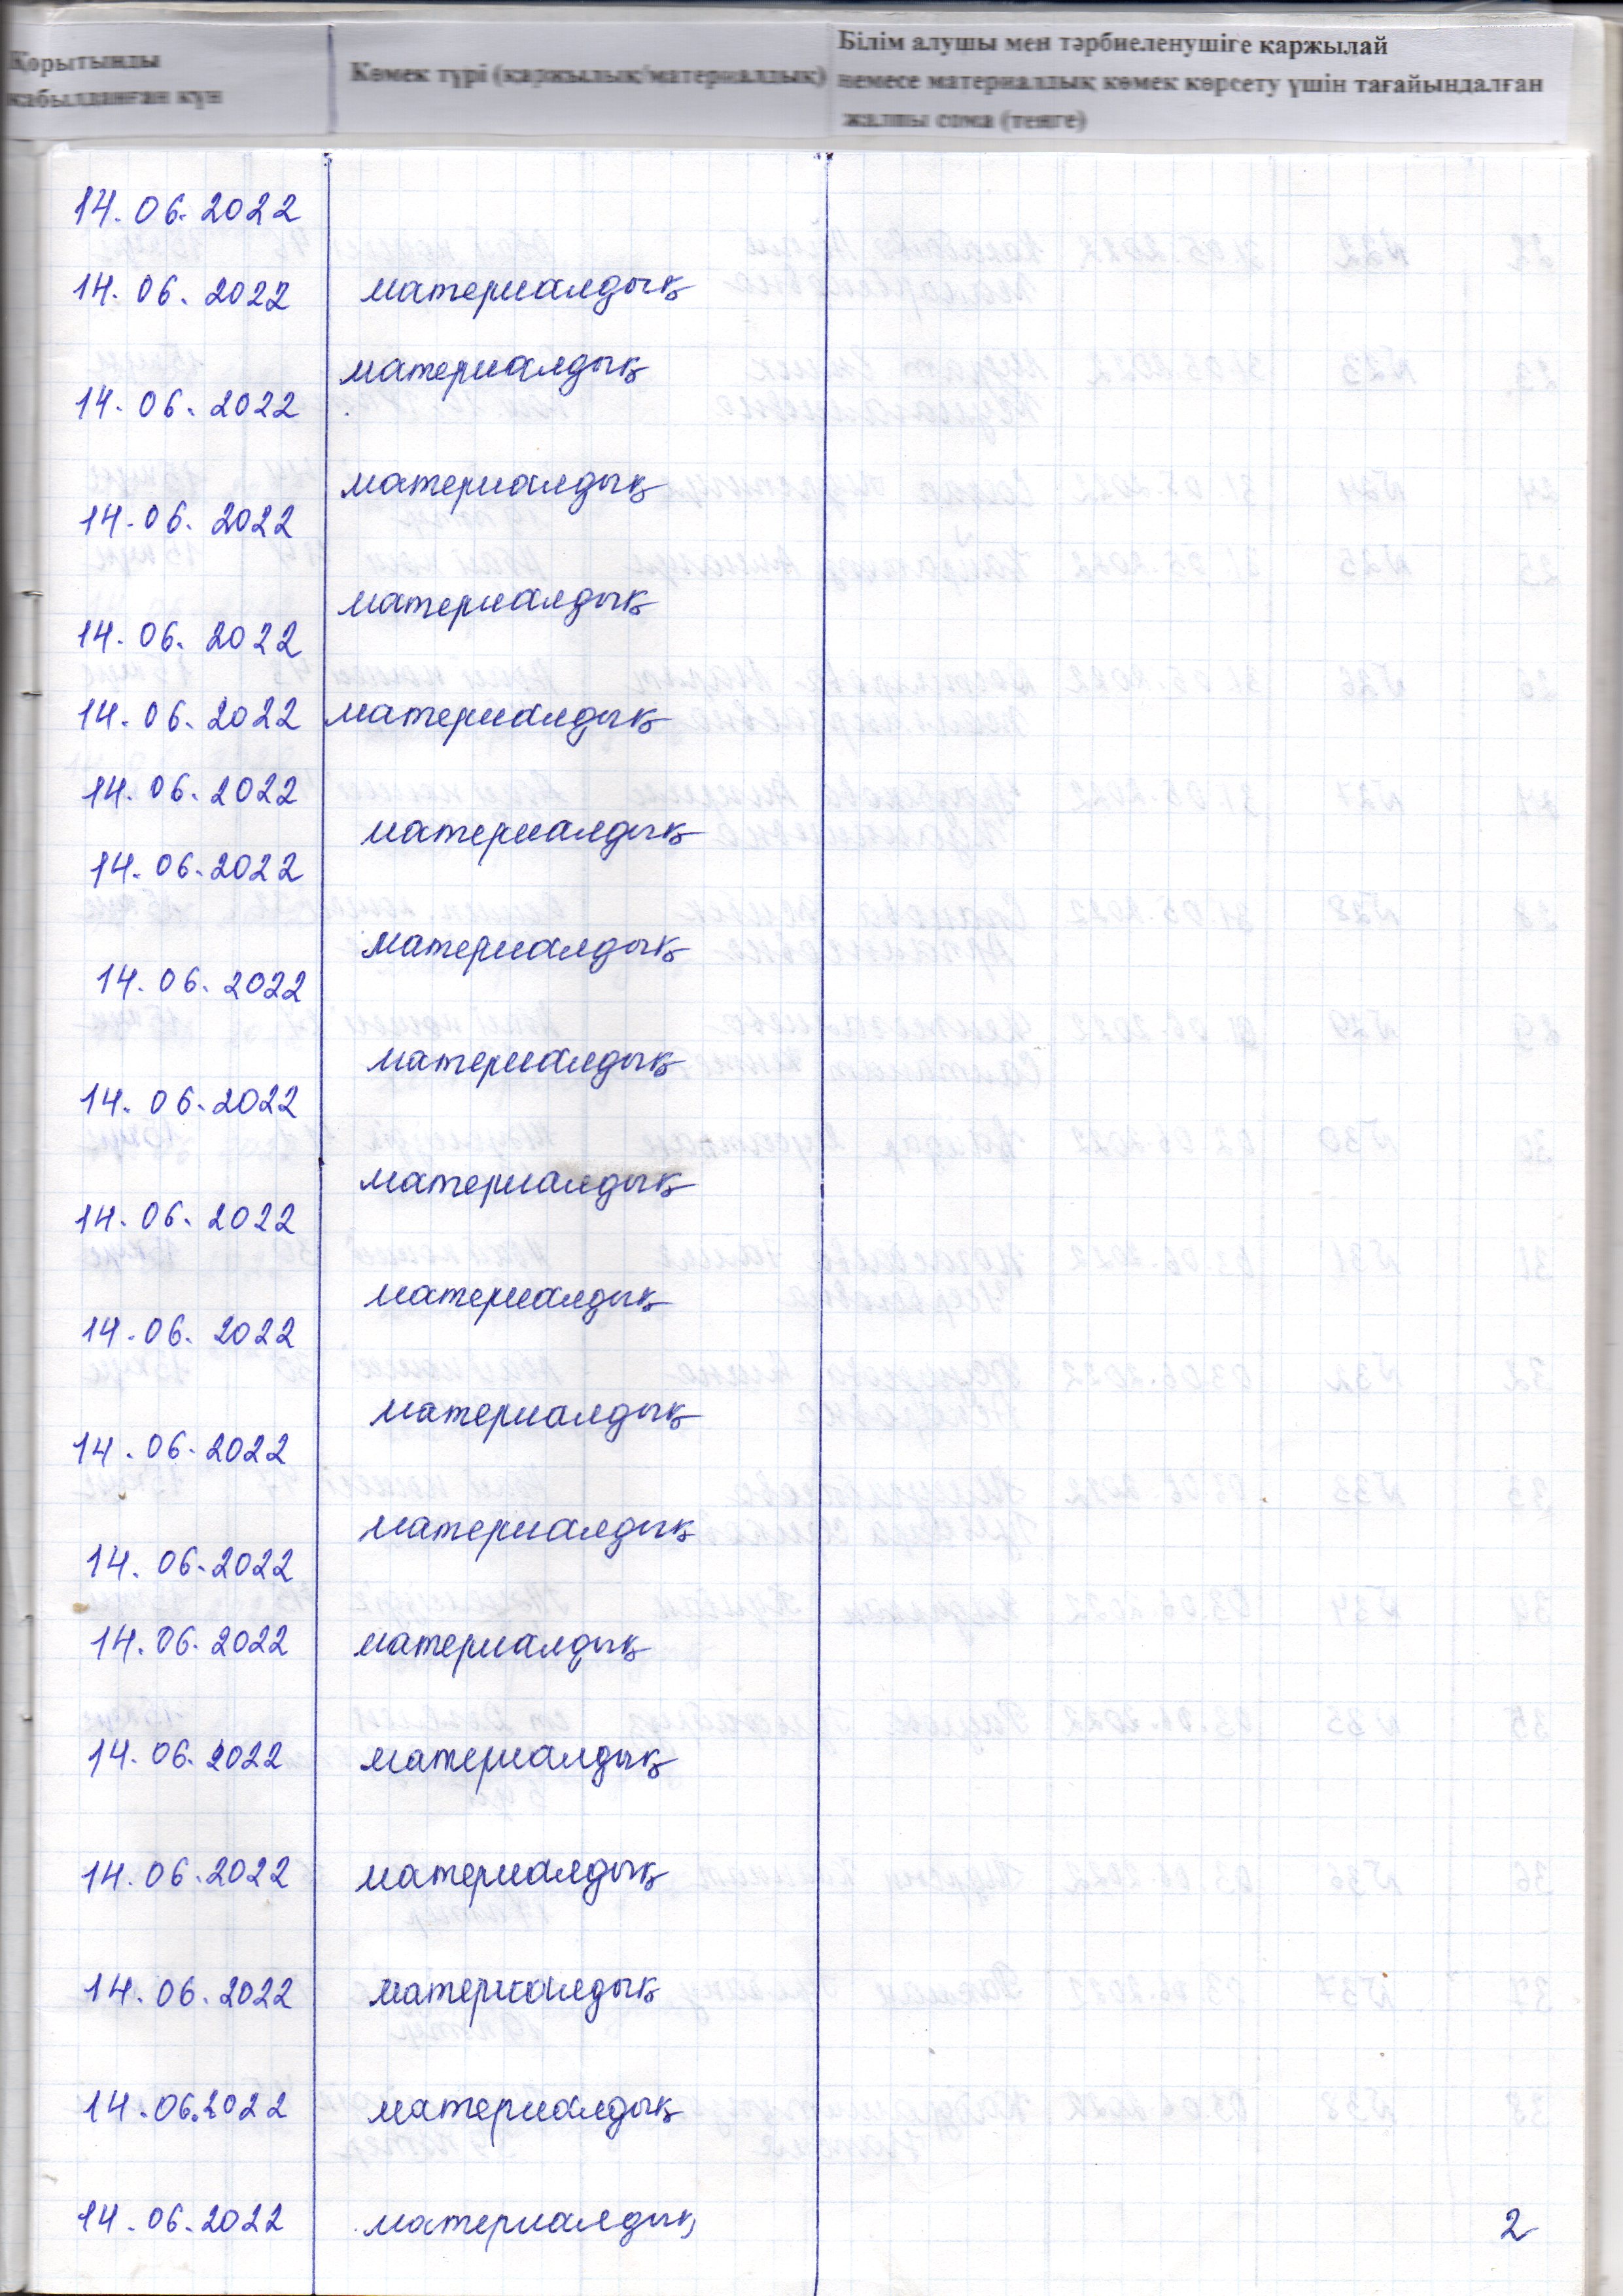 Қорытынды
қабылданған күн
Көмек түрі (қаржылық/материалдық)
Білім алушы мен тәрбиеленушіге қаржылай
немесе материалдық көмек көрсету үшін тағайындалған
жалпы сома (теңге)
14.06.2022
14.06.2022 материалдық
материалдық
14.06.2022
материалдық
14.06.2022
материалдық
14.06.2022
14.06.2022 материалдық
14.06.2022
материалдық
14.06.2022
материалдық
14.06.2022
материалдық
14.06.2022
материалдық
14.06.2022
материалдық
14.06.2022
материалдық
14.06.2022
материалдық
14.06.2022
14.06.2022 материалдық
14.06.2022 материалдық
14.06.2022 материалдық
14.06.2022 материалдық
14.06.2022 материалдық
14.06.2022 материалдық
2